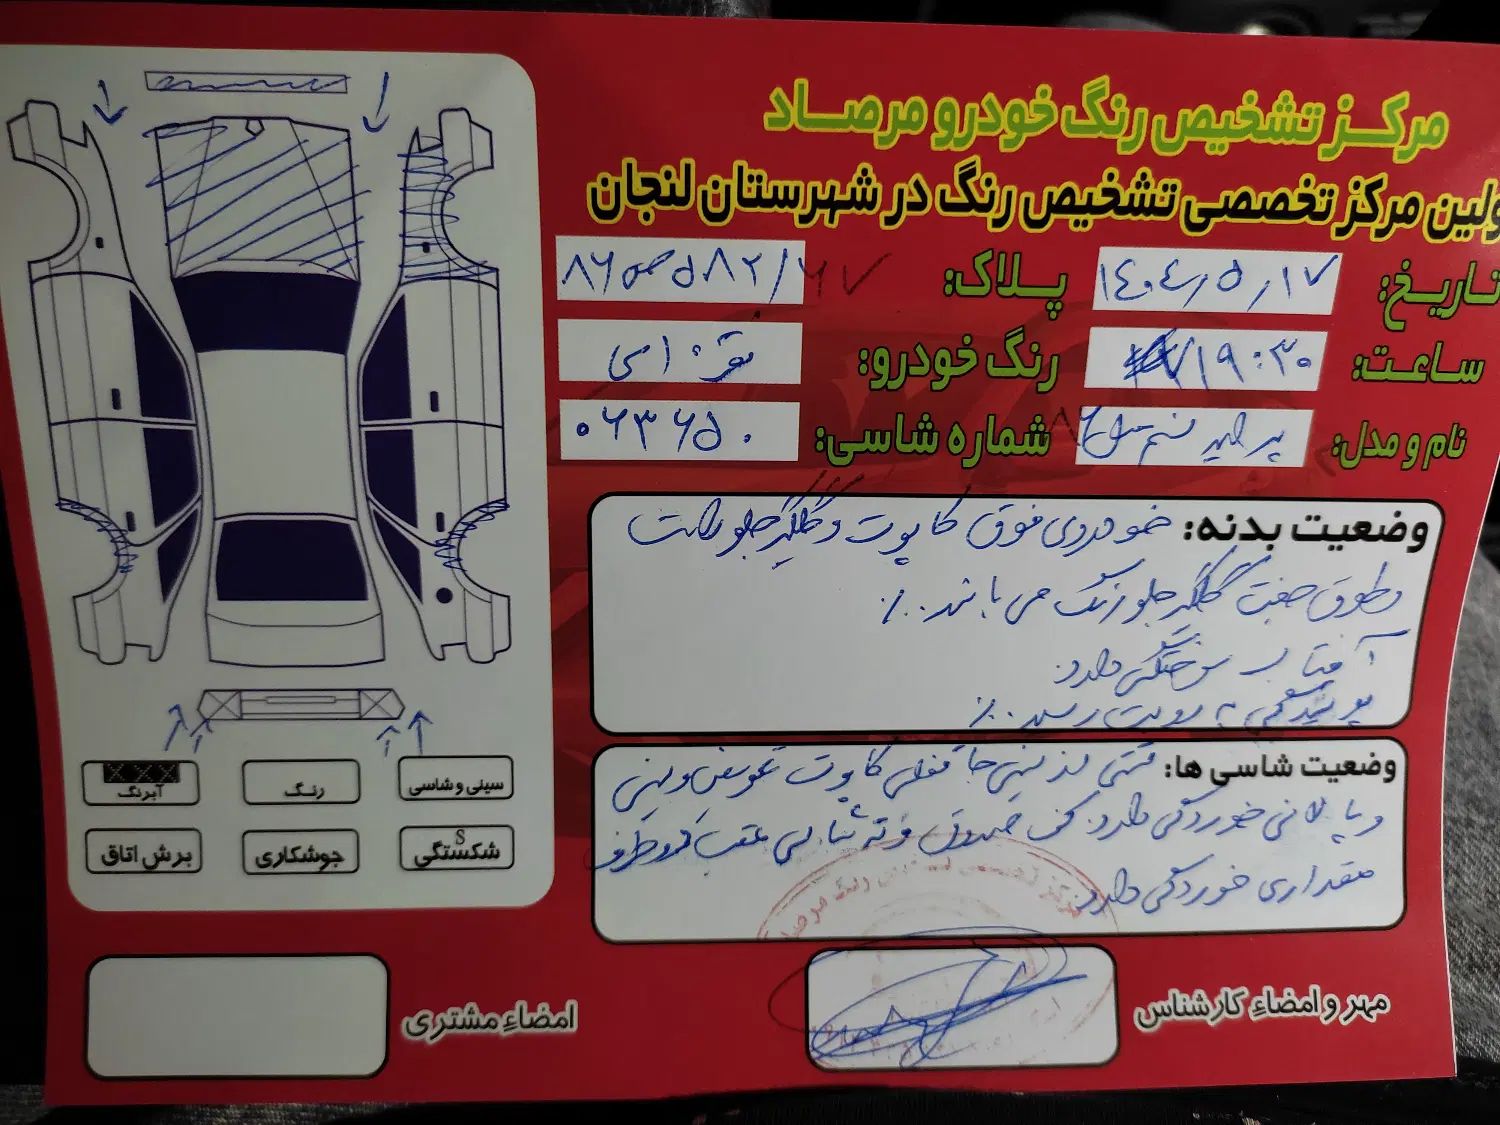 مرکز تشخیص رنگ خودرو مرصاد
ولین مرکز تخصصی تشخیص رنگ در شهرستان لنجان
تاریخ: ۱۴۰۴٫۵٫۱۷
پلاک: ۸۶ص۵۸۲/۶۷
ساعت: ۱۹:۳۰
رنگ خودرو: نقره ای
نام و مدل: پراید نسیم مدل ۸۶
شماره شاسی: ۰۶۳۶۵۰
وضعیت بدنه: خودروی فوق کاپوت و گلگیر جلو راست
و طوق جفت گلگیر جلو رنگ می باشد.٪
آفتاب سوختگی دارد
به رویت رسید.٪
وضعیت شاسی ها: سینی جا قفلی کاپوت تعویض
خوردگی دارد. کف صندوق و ته شاسی عقب دو طرف
مقداری خوردگی دارد.
سینی و شاسی
رنگ
XXX
آبرنگ
S
شکستگی
جوشکاری
برش اتاق
مهر و امضاء کارشناس
امضاء مشتری